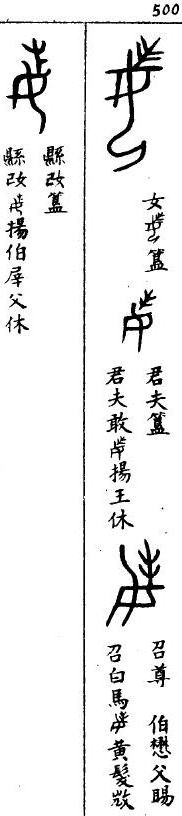 500
女簋
君夫簋
君夫敢揚王休
召尊 伯懋父賜
召白馬黃髮𢼸
縣妀簋
縣妀揚伯屖父休